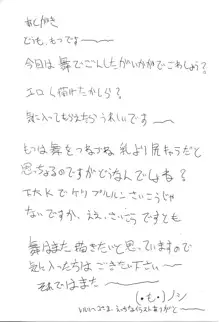 あとがき
どうも、もつです〜〜
今日は舞でごんしたがいかがでごわしょう?
エロく描けたかしら?
気に入ってもらえたらうれしいです
〜〜
もつは舞をつなでね乳より尻キャラだと
思っちょるのですがどうなんでしょね?
でケリプルルンさいこうじゃ
ないですか、ええ、さいこうですとも
舞はまた描きたいと思っていますので
気に入った方はごきたい下さい〜
それではまた〜〜
(・も・)ノシ